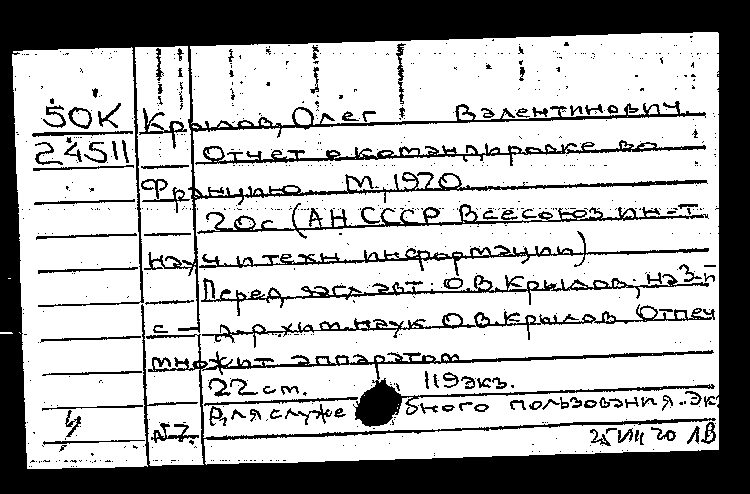 50К Крылов, Олег Валентинович.
24511 Отчет о командировке во
Францию. М., 1970.
20с (АН СССР Всесоюз ин-т
науч. и техн. информации)
Перед загл. авт: О.В.Крылов; на 3-й
с – д-р хим. наук О.В.Крылов. Отпеч
множит. аппаратом
22 см. 119 экз.
Для служебного пользования. экз
№7.
25 VIII 70 ЛВ